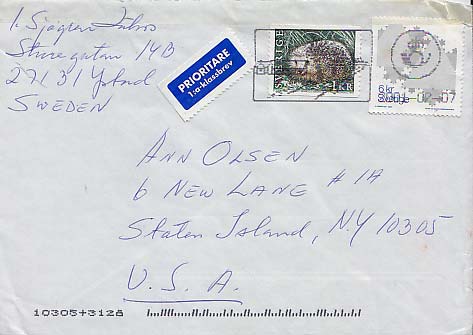 I. Sjögren
Sturegatan 14B
271 31 Ystad
SWEDEN
PRIORITAIRE
1:a-klassbrev
SVERIGE
1 KR
6 kr
Sverige
-02-07
ANN OLSEN
6 NEW LANE # 1A
Staten Island, NY 10305
U.S.A.
10305+3128